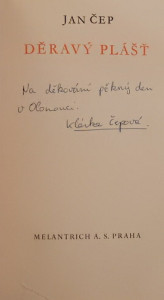 JAN ČEP
DĚRAVÝ PLÁŠŤ
Na děkování pěkný den
v Olomouci.
Klárka Čepová.
MELANTRICH A. S. PRAHA